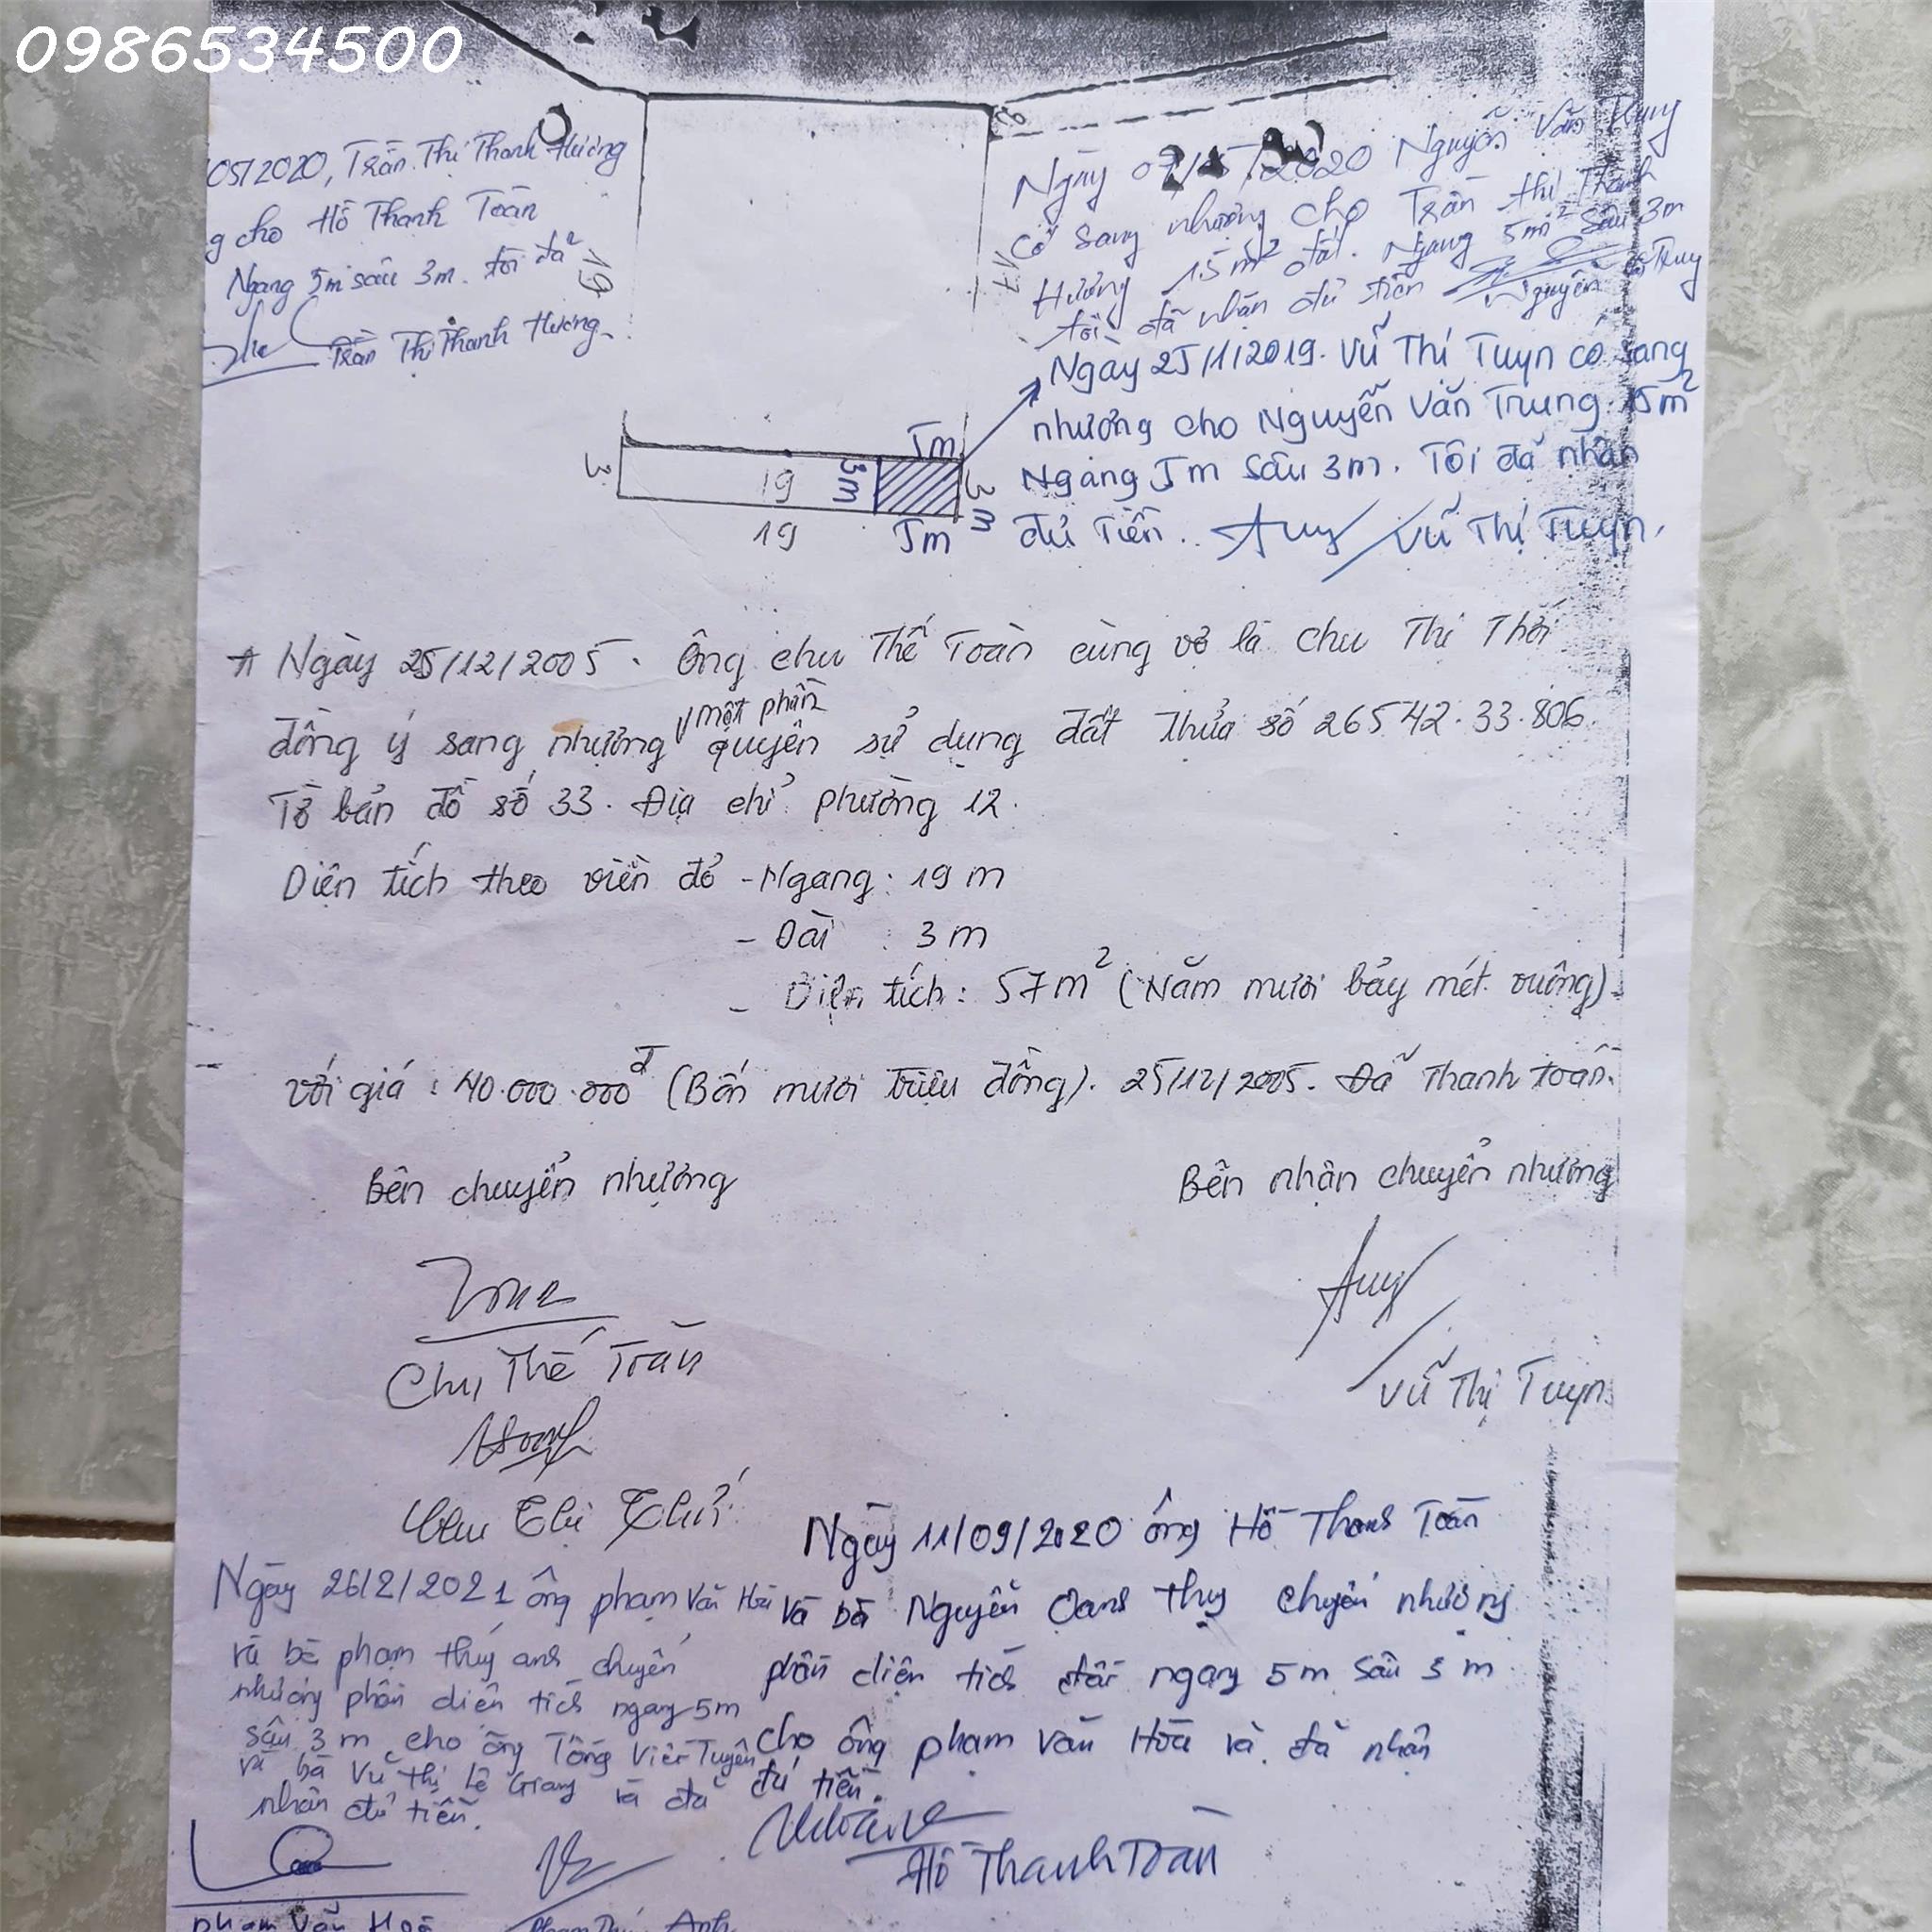 0986534500
05/2020, Trần Thị Thanh Hương
g cho Hồ Thanh Toàn
Ngang 5m sâu 3m. tôi đã
Trần Thị Thanh Hương
19
17
Ngày 2020 Nguyễn Văn Trung
Có sang nhượng cho Trần Thị Thanh
Hương 15m² đất. Ngang 5m² sâu 3m
tôi đã nhận đủ tiền Nguyễn Trung
Ngày 25/1/2019. Vũ Thị Tuyn có sang
nhương cho Nguyễn Văn Trung. 15m²
Ngang 5m sâu 3m. Tôi đã nhận
đủ Tiền. Vũ Thị Tuyn.
5m
3
19
3m
3m
19
5m
Ngày 25/12/2005. Ông chu Thế Toàn cùng vợ là chu Thị Thới
một phần
đồng ý sang nhượng quyền sử dụng đất thửa số 26542.33.806.
Tờ bản đồ số 33. Địa chỉ phường 12.
Diện tích theo viền đỏ - Ngang: 19 m
- Dài : 3 m
- Diện tích: 57m² (Năm mươi bảy mét vuông).
với giá: 40.000.000đ (Bốn mươi triệu đồng). 25/12/2005. Đã Thanh toán.
Bên chuyển nhượng
Bên nhận chuyển nhượng
Chu Thế Toàn
Vũ Thị Tuyn
Chu Thị
Ngày 11/09/2020 ông Hồ Thanh Toàn
và bà Nguyễn Oanh Thy chuyển nhượng
phần diện tích đất ngang 5m sâu 3m
cho ông phạm văn Hòa và đã nhận
đủ tiền.
Hồ Thanh Toàn
Ngày 26/2/2021 ông phạm văn Hòa
và bà phạm thúy anh chuyển
nhượng phần diện tích ngang 5m
sâu 3m cho ông Tống Viết Tuyên
và bà Vũ Thị Lệ Giang và đã
nhận đủ tiền.
phạm Văn Hoà
Phạm Thúy Anh